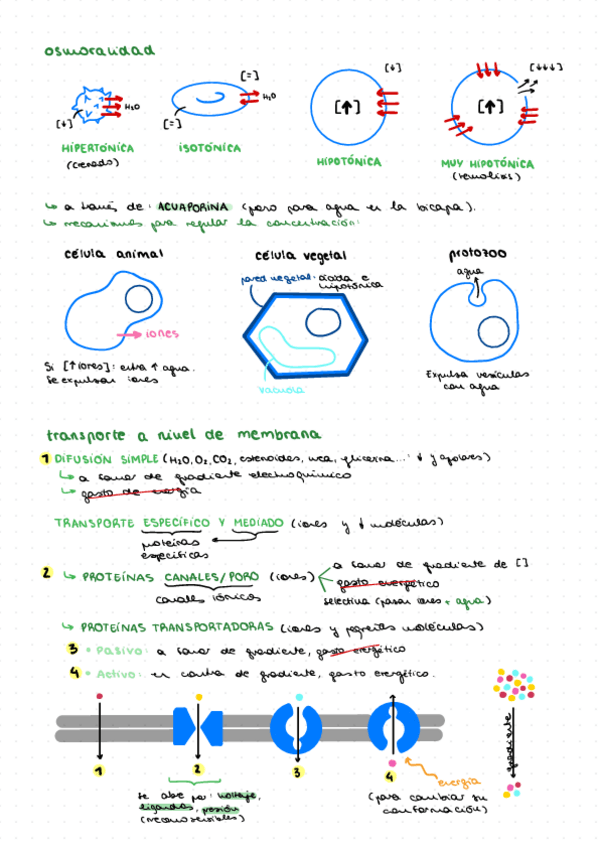 osmoralidad
[↓] H₂O
[=] H₂O [=]
[↓] [↑]
[↓↓↓] [↑]
HIPERTÓNICA
(crenado)
ISOTÓNICA
HIPOTÓNICA
MUY HIPOTÓNICA
(hemolisis)
↳ a través de: ACUAPORINA (poro para agua en la bicapa).
↳ mecanismos para regular la concentración:
célula animal
célula vegetal
protozoo
pared vegetal: ácida e
hipotónica
agua
→ iones
vacuola
Si [↑iones]: entra ↑ agua.
Se expulsan iones
Expulsa vesículas
con agua
transporte a nivel de membrana
1 DIFUSIÓN SIMPLE (H₂O, O₂, CO₂, esteroides, urea, glicerina...: ↓ y apolares)
↳ a favor de gradiente electroquímico
↳ gasto de energía
TRANSPORTE ESPECÍFICO Y MEDIADO (iones y ↓ moléculas)
proteínas
específicas
2 ↳ PROTEÍNAS CANALES/PORO (iones)
canales iónicos
a favor de gradiente de []
gasto energético
selectiva (pasan iones + agua)
↳ PROTEÍNAS TRANSPORTADORAS (iones y pequeñas moléculas)
3 • Pasivo: a favor de gradiente, gasto energético
4 • Activo: en contra de gradiente, gasto energético.
gradiente
1
2
3
4
energía
se abre por: voltaje,
ligandos, presión
(mecanosensibles)
(para cambiar su
conformación)